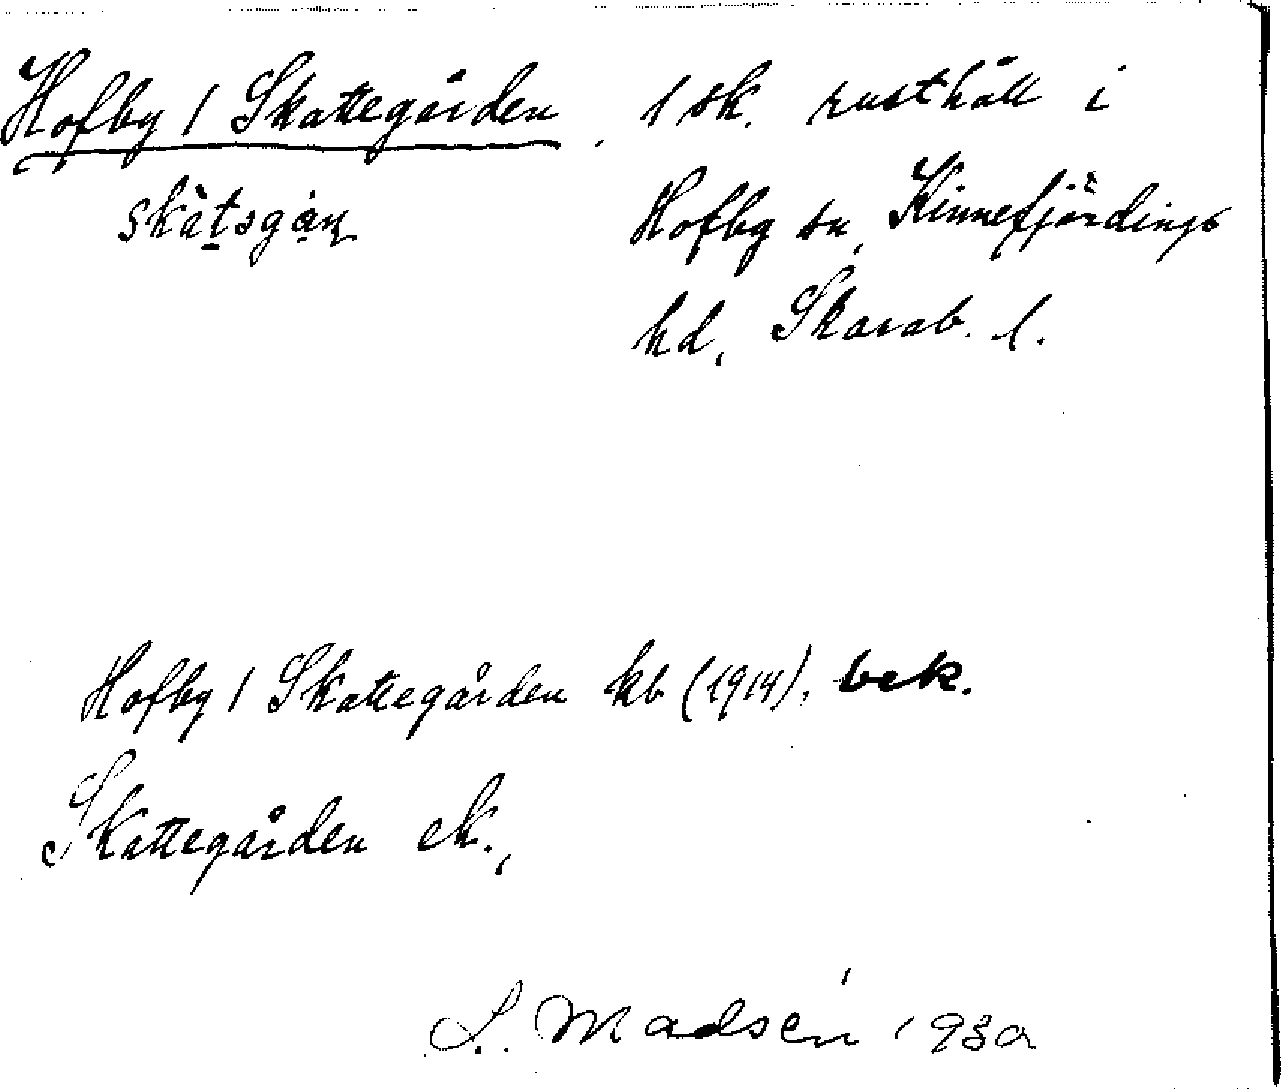 Hofby 1 Skattegården, 1 sk. rusthåll i
skàtsgȧn̥
Hofby sn, Kinnefjärdings
hd, Skarab. l.
Hofby 1 Skattegården kb (1914), bek.
Skattegården ek.,
S. Madsén 1930